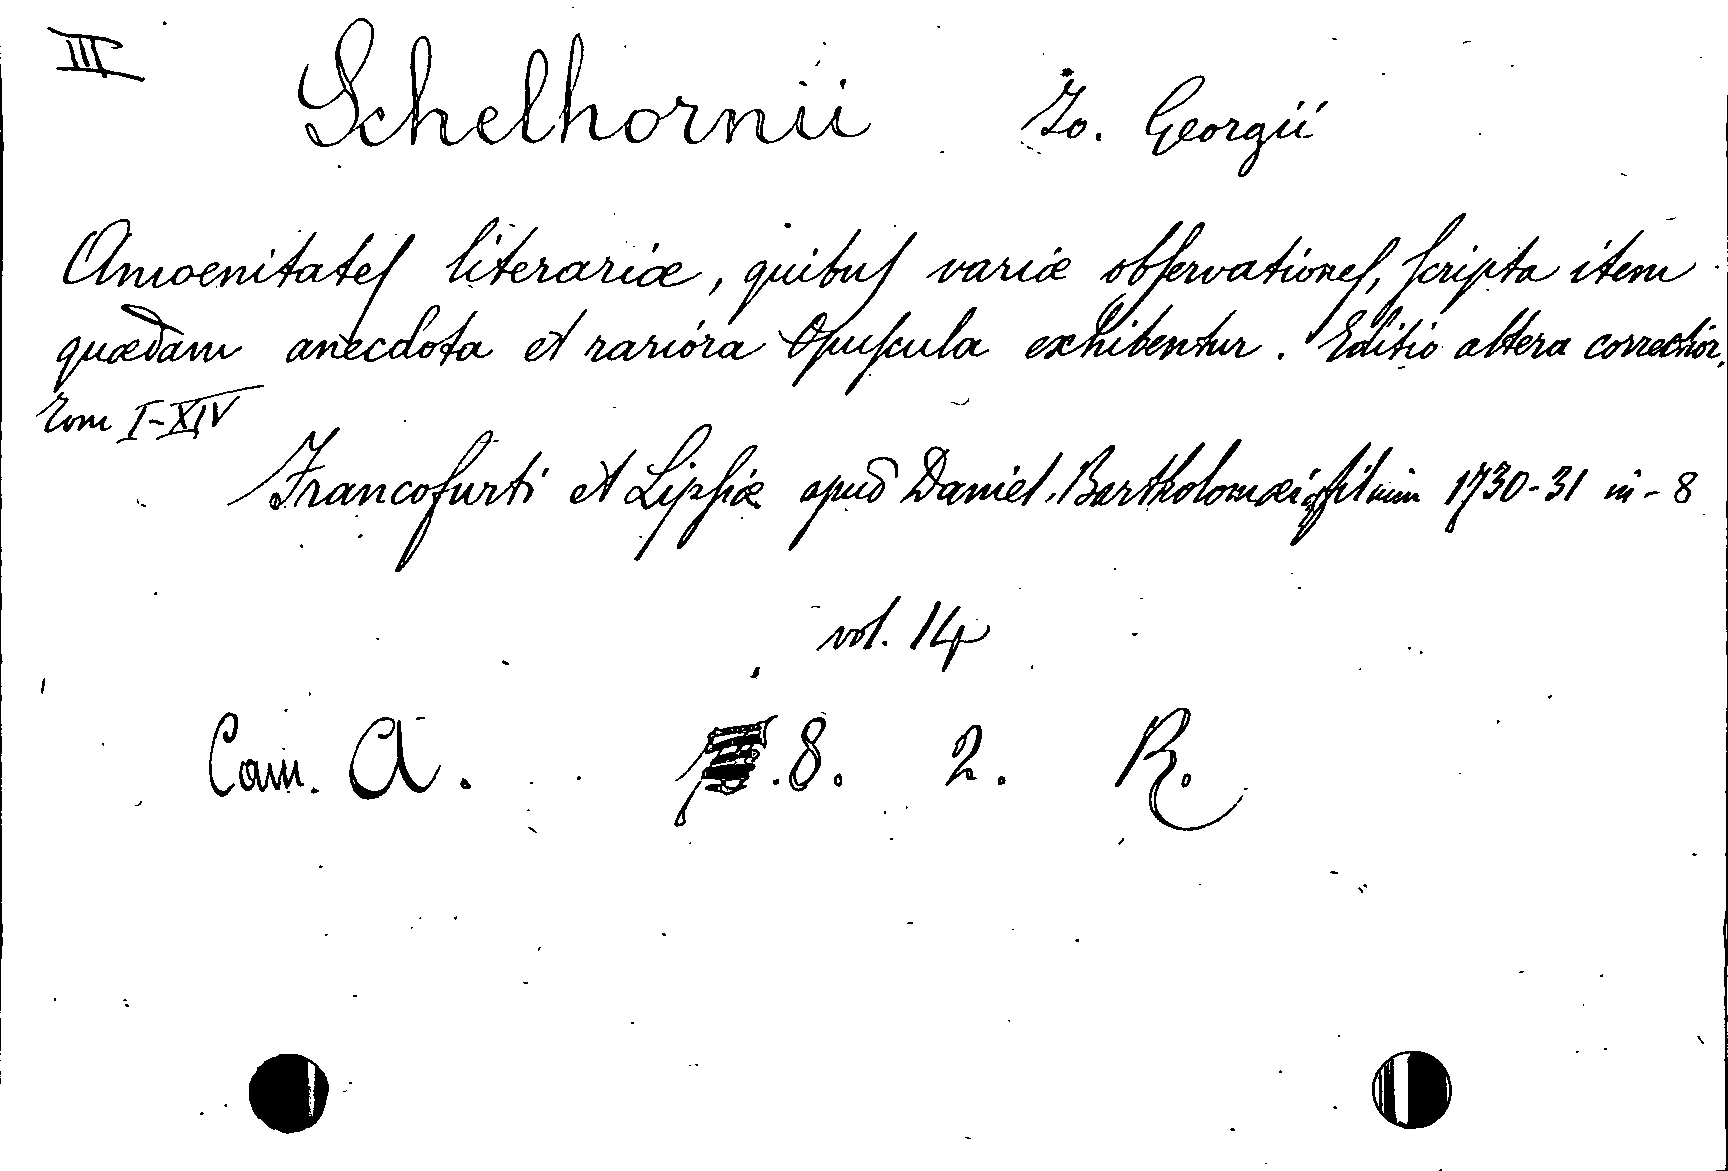 III Schelhornii Jo. Georgii
Amoenitateſ literariæ, quibuſ variæ obſervationeſ, ſcripta item
quædam anecdota et rariora Opuſcula exhibentur. Editio altera correctior,
Tom I-XIV
Francofurti et Lipſiæ apud Daniel. Bartholomæi filium 1730-31 in-8
vol. 14
Cam. A. .8. 2. R.